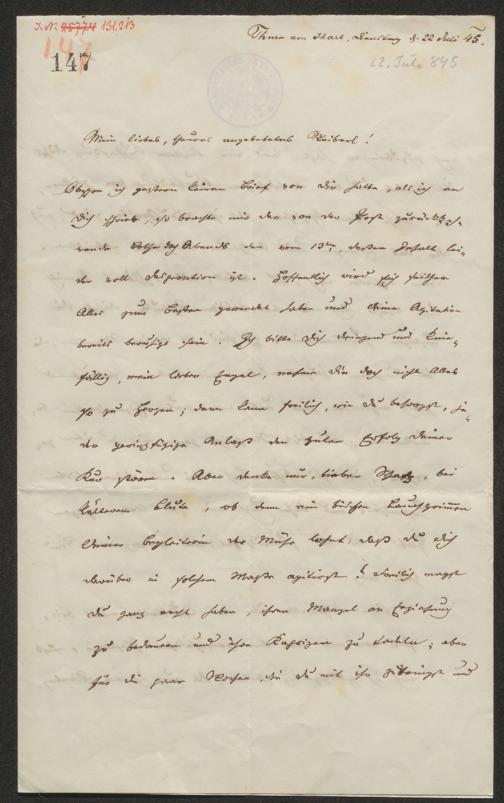 I. N. 25774 131.213
147
147
Thurn am Hart, Dienstag d. 22 Juli 45.
22. Juli 845
Mein liebes, theures angebetetes Weiberl!
Obschon ich gestern keinen Brief von Dir hatte, als ich an
Dich schrieb, so brachte mir der von der Post zurückkeh-
rende Bothe doch Abends den vom 13ten, dessen Inhalt lei-
der voll ist. Hoffentlich wird sich seither
Alles zum Besten gewendet haben und Deine Agitation
bereits beruhigt sein. Ich bitte Dich dringend und knie-
fällig, mein lieber Engel, nehme Dir doch nicht Alles
so zu Herzen; denn kann freilich, wie Du besorgst, je-
der geringfügige Anlaß den guten Erfolg Deiner
Kur stören. Aber denke nur, lieber Schatz, bei
kälterem Blute, ob denn ein bischen
Deiner Begleiterin der Mühe lohnt, daß Du Dich
darüber in solchem Maße agitirst! Freilich magst
Du ganz recht haben, ihren Mangel an Erziehung
zu bedauern und ihre Kaprizen zu tadeln; aber
für die paar Wochen, die Du mit ihr und